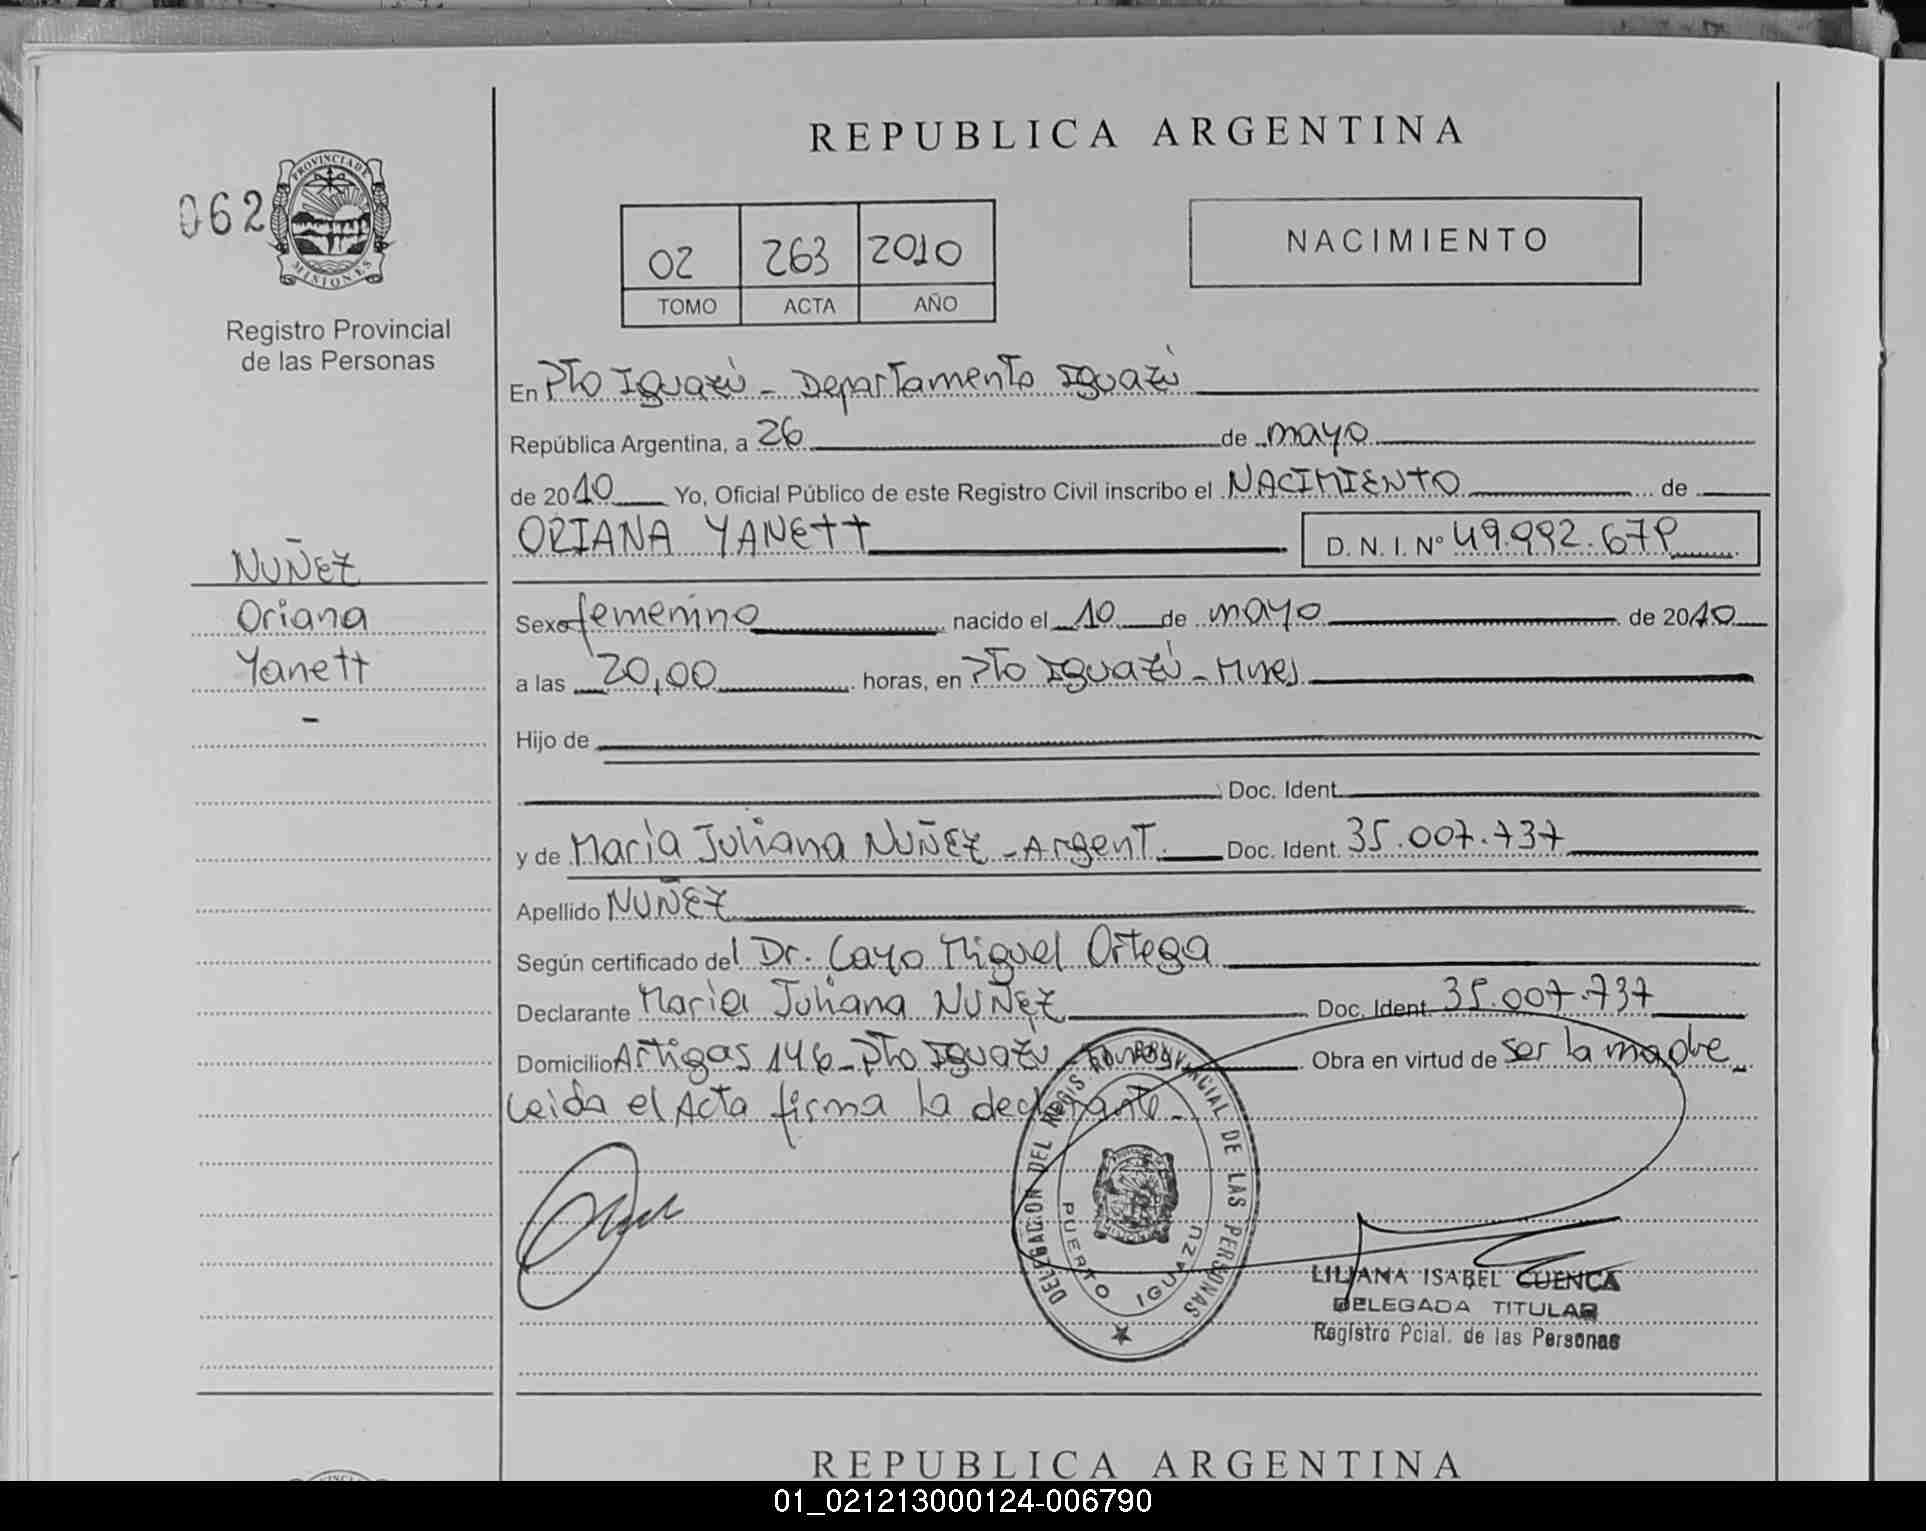 REPUBLICA ARGENTINA
062
PROVINCIA DE
MISIONES
Registro Provincial
de las Personas
02 263 2010
TOMO ACTA AÑO
NACIMIENTO
En Pto Iguazú - Departamento Iguazú
República Argentina, a 26 de mayo
de 2010 Yo, Oficial Público de este Registro Civil inscribo el NACIMIENTO de
ORIANA YANETT
D. N. I. Nº 49.992.679
NUÑEZ
Oriana
Yanett
-
Sexo femenino nacido el 10 de mayo de 2010
a las 20,00 horas, en Pto Iguazú - Mnes
Hijo de
Doc. Ident.
y de María Juliana NUÑEZ - Argent. Doc. Ident. 35.007.737
Apellido NUÑEZ
Según certificado del Dr. Cayo Miguel Ortega
Declarante María Juliana NUÑEZ Doc. Ident. 35.007.737
Domicilio Artigas 146 - Pto Iguazú Obra en virtud de ser la madre
Leida el Acta firma la declarante -
DELEGACION DEL REGISTRO PROVINCIAL DE LAS PERSONAS
PUERTO IGUAZU
LILIANA ISABEL CUENCA
DELEGADA TITULAR
Registro Pcial. de las Personas
REPUBLICA ARGENTINA
01_021213000124-006790